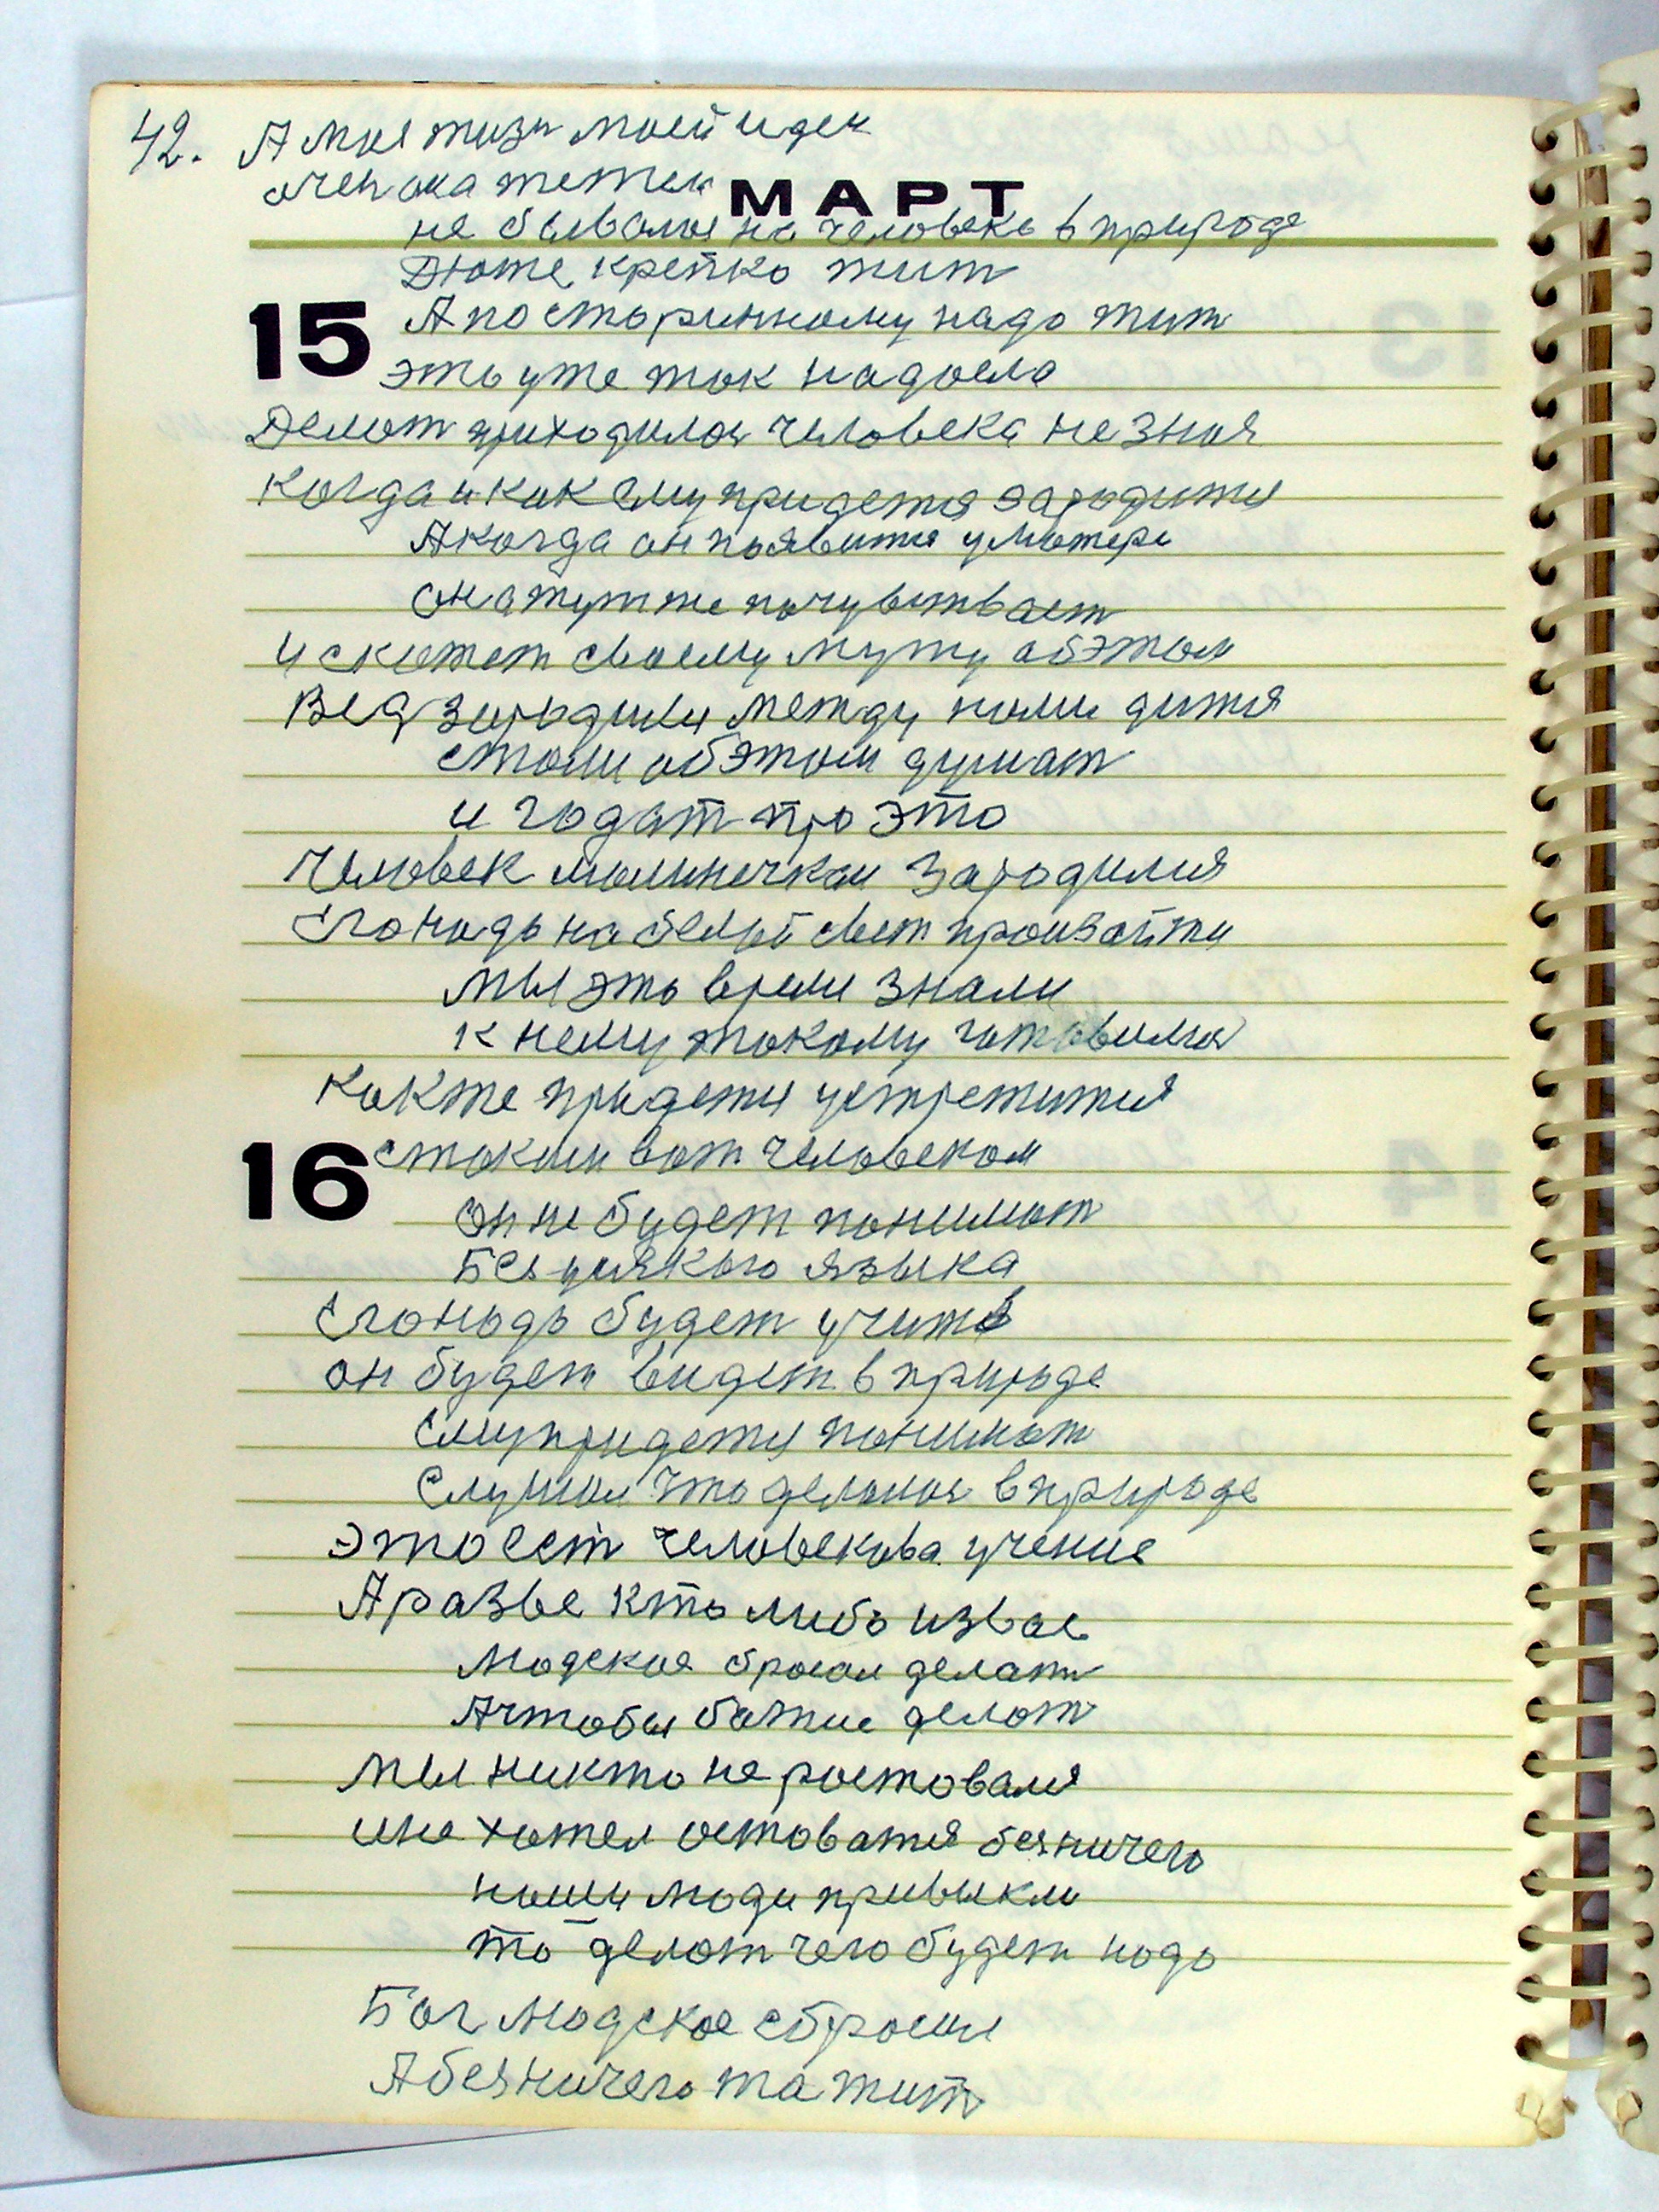 42. А моя жизн моей идеи
очен она тяжела
МАРТ
не бывалая на человека в природе
Дюже крепко жит
15 А по старинному надо жит
это уже так надоела
Делат приходилос человека не зная
Когда и как ему придется зародится
А когда он появится у матере
она тут же почувствает
и скажет своему мужу обэтом
Вед зародили между нами дитя
стали обэтом думат
и годат про это
Человек малиничкам зародился
Его надо на белый свет произвайти
мы это время знали
к нему такому готовилися
Как же придется устретится
16 с таким вот человеком
он не будет понимат
Без усякого языка
Его надо будет учить
он будет видет в природе
Ему придется понимат
Слухам что делалос в природе
это ест человекова учение
А разве кто либо из вас
людское бросал делат
А чтобы божие делат
мы никто не растовался
и не хотел оставатся без ничего
наши люди привыкли
то делат чего будет надо
Бог людское сбросил
А без ничего жа жит